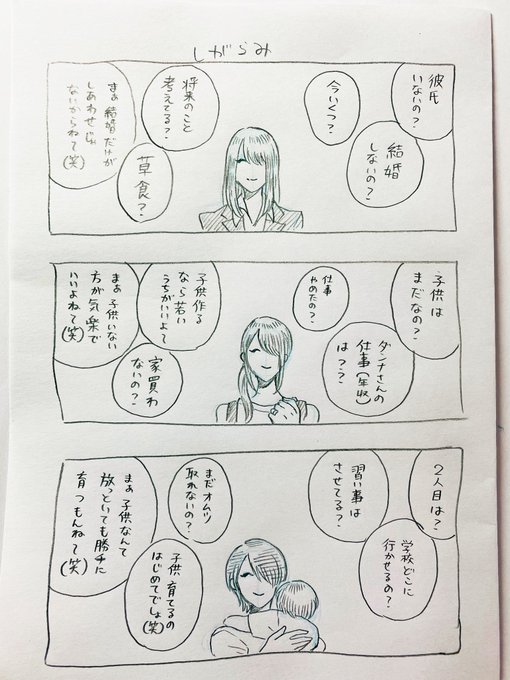 しがらみ
彼氏
いないの?
結婚
しないの?
今いくつ?
将来のこと
考えてる?
草食?
まぁ 結婚だけが
しあわせじゃ
ないからねて
(笑)
子供は
まだなの?
ダンナさんの
仕事(年収)
は??
仕事
やめたの?
子供作る
なら若い
うちがいいよて
家買わ
ないの?
まぁ 子供いない
方が気楽で
いいよねて(笑)
2人目は?
学校どこに
行かせるの?
習い事は
させてる?
まだオムツ
取れないの?
子供育てるの
はじめてでしょ(笑)
まぁ子供なんて
放っといても勝手に
育つもんねて(笑)